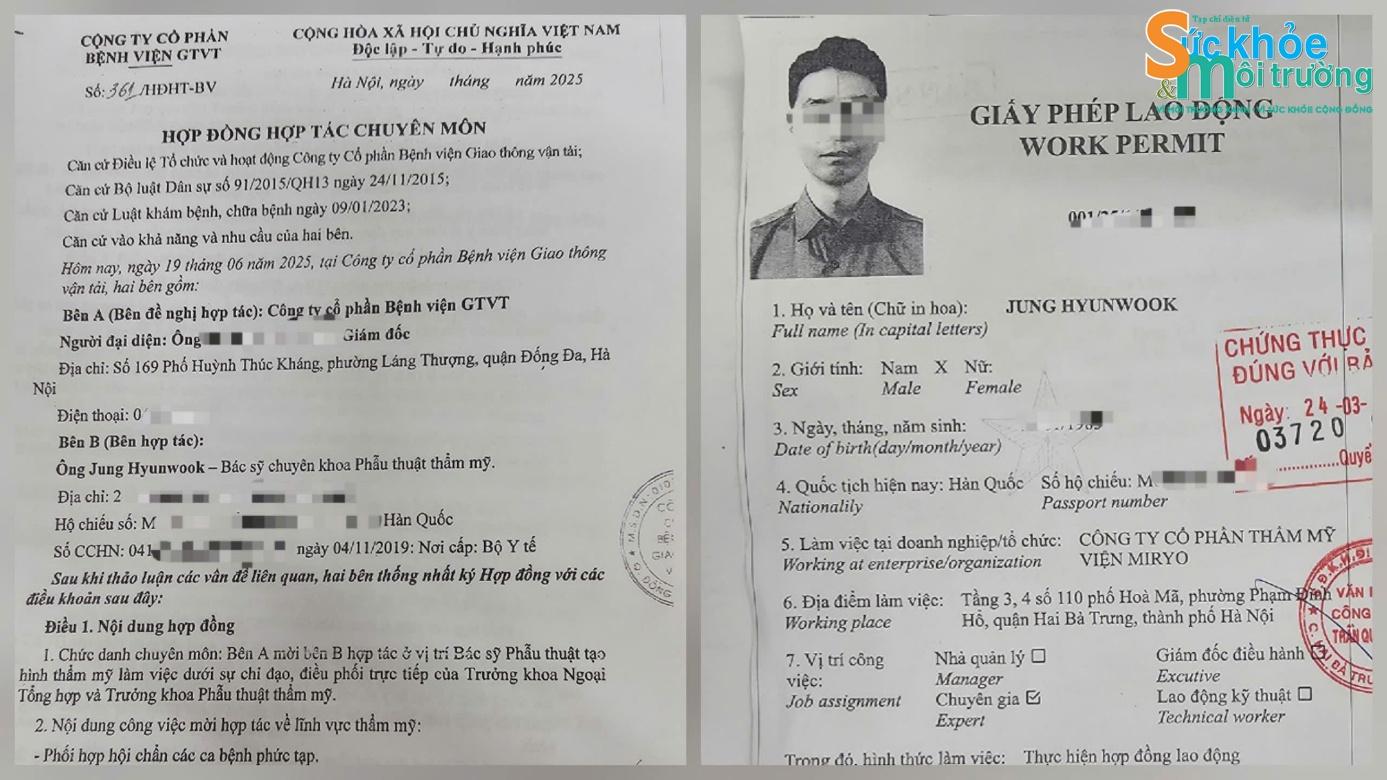 CÔNG TY CỔ PHẦN
BỆNH VIỆN GTVT
Số: 361/HĐHT-BV
CỘNG HÒA XÃ HỘI CHỦ NGHĨA VIỆT NAM
Độc lập - Tự do - Hạnh phúc
Hà Nội, ngày tháng năm 2025
HỢP ĐỒNG HỢP TÁC CHUYÊN MÔN
Căn cứ Điều lệ Tổ chức và hoạt động Công ty Cổ phần Bệnh viện Giao thông vận tải;
Căn cứ Bộ luật Dân sự số 91/2015/QH13 ngày 24/11/2015;
Căn cứ Luật khám bệnh, chữa bệnh ngày 09/01/2023;
Căn cứ vào khả năng và nhu cầu của hai bên.
Hôm nay, ngày 19 tháng 06 năm 2025, tại Công ty cổ phần Bệnh viện Giao thông
vận tải, hai bên gồm:
Bên A (Bên đề nghị hợp tác): Công ty cổ phần Bệnh viện GTVT
Người đại diện: Ông Giám đốc
Địa chỉ: Số 169 Phố Huỳnh Thúc Kháng, phường Láng Thượng, quận Đống Đa, Hà
Nội
Điện thoại: 0
Bên B (Bên hợp tác):
Ông Jung Hyunwook – Bác sỹ chuyên khoa Phẫu thuật thẩm mỹ.
Địa chỉ: 2
Hộ chiếu số: M Hàn Quốc
Số CCHN: 041 ngày 04/11/2019: Nơi cấp: Bộ Y tế
Sau khi thảo luận các vấn đề liên quan, hai bên thống nhất ký Hợp đồng với các
điều khoản sau đây:
Điều 1. Nội dung hợp đồng
1. Chức danh chuyên môn: Bên A mời bên B hợp tác ở vị trí Bác sỹ Phẫu thuật tạo
hình thẩm mỹ làm việc dưới sự chỉ đạo, điều phối trực tiếp của Trưởng khoa Ngoại
Tổng hợp và Trưởng khoa Phẫu thuật thẩm mỹ.
2. Nội dung công việc mời hợp tác về lĩnh vực thẩm mỹ:
- Phối hợp hội chẩn các ca bệnh phức tạp.
Tạp chí điện tử
Sức khỏe
& Môi trường
VÌ MÔI TRƯỜNG XANH, VÌ SỨC KHỎE CỘNG ĐỒNG
GIẤY PHÉP LAO ĐỘNG
WORK PERMIT
1. Họ và tên (Chữ in hoa): JUNG HYUNWOOK
Full name (In capital letters)
2. Giới tính: Nam X Nữ:
Sex Male Female
3. Ngày, tháng, năm sinh:
Date of birth(day/month/year)
4. Quốc tịch hiện nay: Hàn Quốc Số hộ chiếu: M
Nationalily Passport number
5. Làm việc tại doanh nghiệp/tổ chức: CÔNG TY CỔ PHẦN THẨM MỸ
Working at enterprise/organization VIỆN MIRYO
6. Địa điểm làm việc: Tầng 3, 4 số 110 phố Hoà Mã, phường Phạm Đình
Working place Hổ, quận Hai Bà Trưng, thành phố Hà Nội
7. Vị trí công Nhà quản lý Giám đốc điều hành
việc: Manager Excutive
Job assignment Chuyên gia Lao động kỹ thuật
Expert Technical worker
Trong đó, hình thức làm việc: Thực hiện hợp đồng lao động
CHỨNG THỰC
ĐÚNG VỚI
Ngày: 24 -03-
03720
Quyể
VĂN
CÔNG
TRẦN